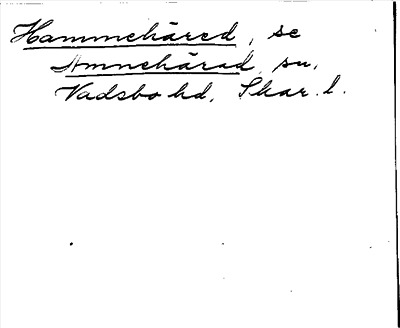 Hammehäred, se
Amnehärad sn.
Vadsbo hd, Skar. l.